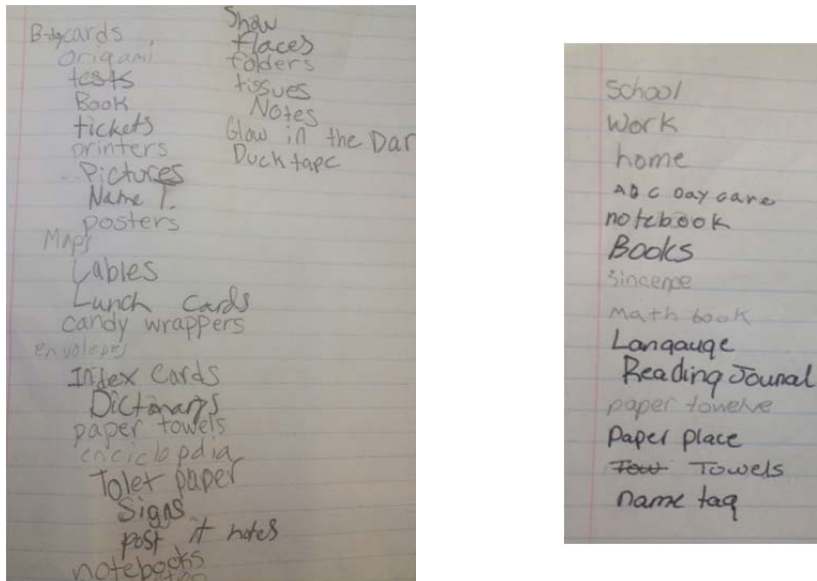 B-day cards
origami
tests
Book
tickets
printers
Pictures
Name T.
posters
Maps
Lables
Lunch Cards
candy wrappers
envolepes
Index Cards
Dictonarys
paper towels
enciclopdia
Tolet paper
Signs
post it notes
notebooks
Show
places
folders
tissues
Notes
Glow in the Dar
Duck tape
School
Work
home
ABC Day care
notebook
Books
Sincence
math book
Langauge
Reading Jounal
paper towelve
Paper place
Tow Towels
name tag